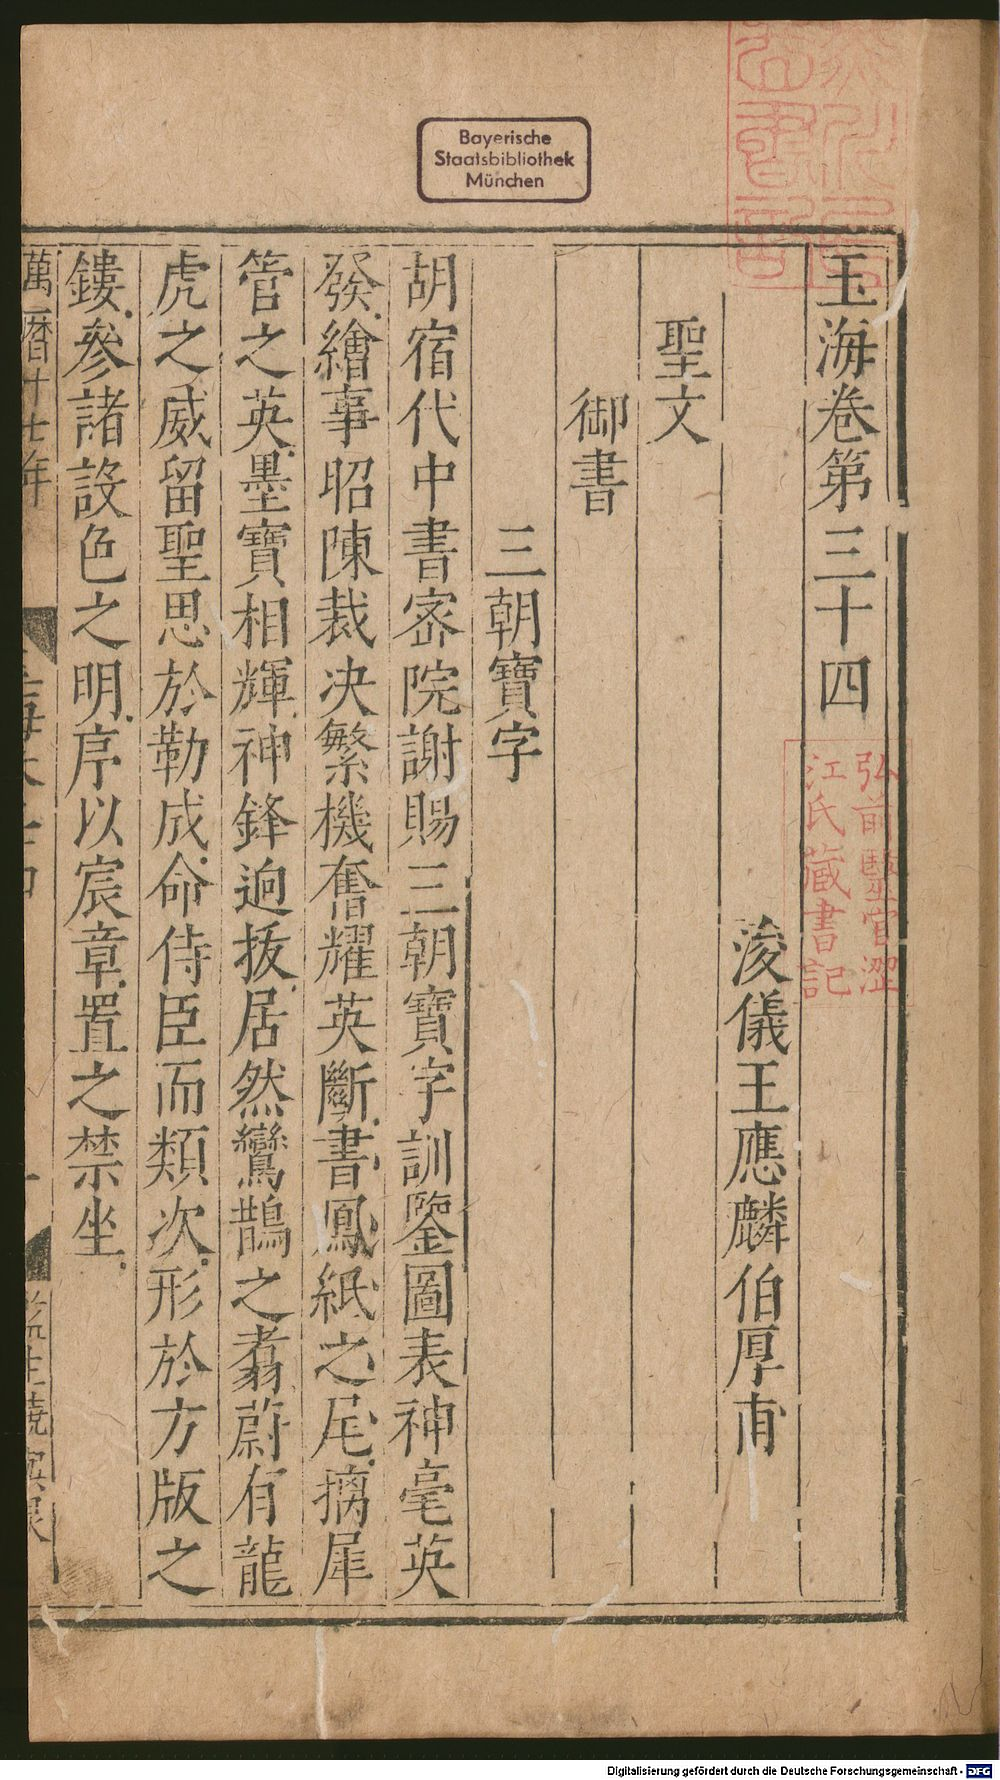 玉海卷第三十四
浚儀王應麟伯厚甫
聖文
御書
三朝寶字
胡宿代中書宻院謝賜三朝寶字訓鑒圖表神毫英
發繪事昭陳裁決繁機奮耀英斷書鳳紙之尾摛犀
管之英墨寶相輝神鋒逈拔居然鸞鵲之翥蔚有龍
虎之威留聖思於勒成命侍臣而類次形於方版之
鏤參諸設色之明序以宸章置之禁坐
萬曆十七年
弘前醫官澀
江氏藏書記
Bayerische
Staatsbibliothek
München
Digitalisierung gefördert durch die Deutsche Forschungsgemeinschaft - DFG